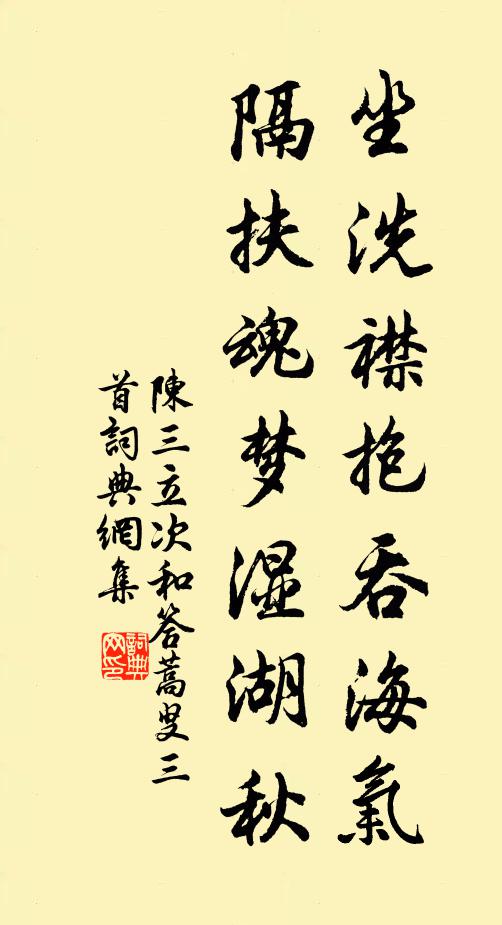 坐洗襟抱吞海氣
隔扶魂梦湿湖秋
陳三立次和答蒿叟三
首詞典網集
詞典
网印